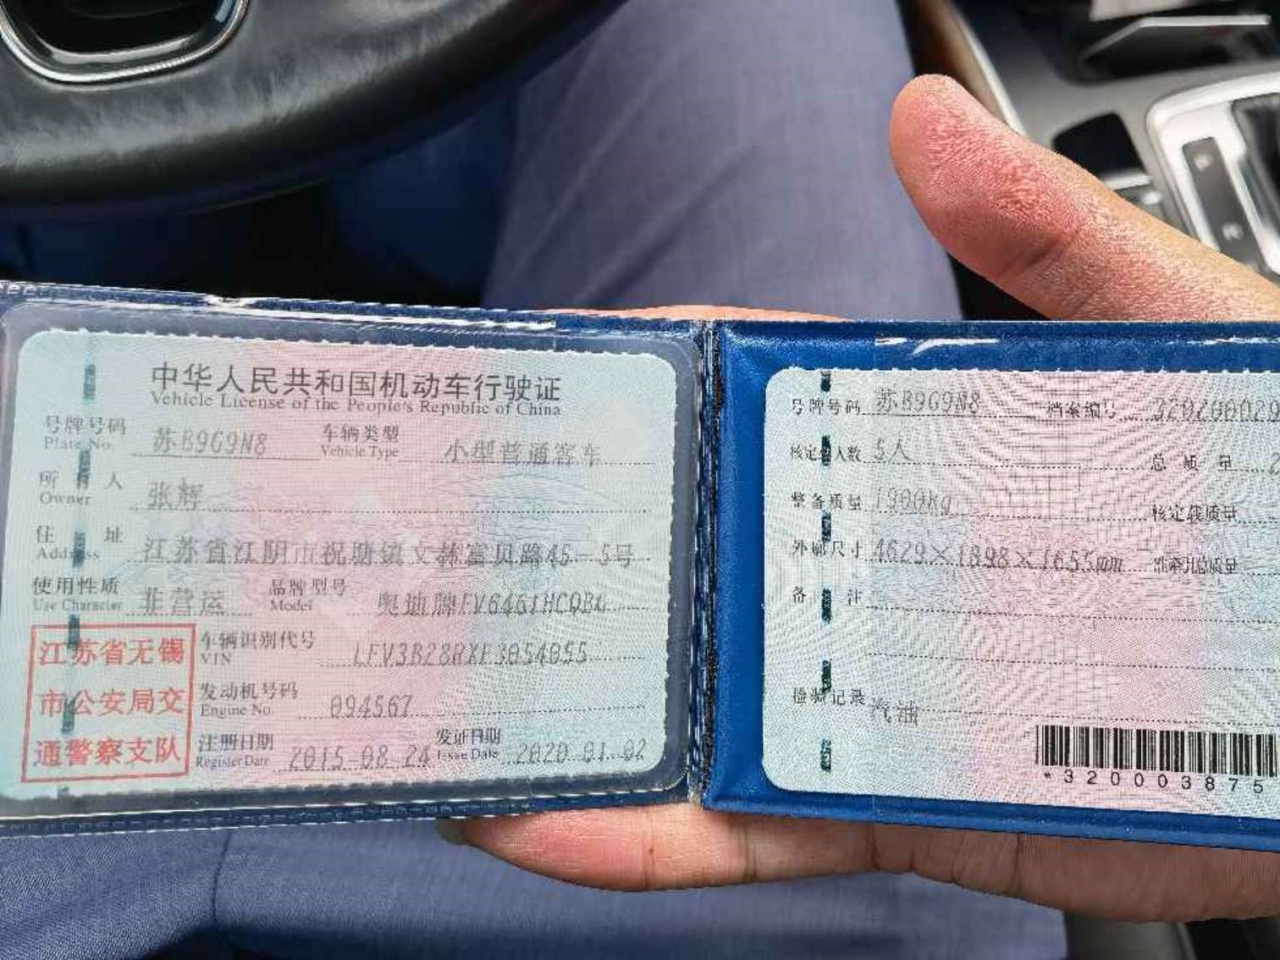 中华人民共和国机动车行驶证
Vehicle License of the People's Republic of China
号牌号码 苏B9G9N8 车辆类型 小型普通客车
Plate No. Vehicle Type
所有人 张辉
Owner
住址 江苏省江阴市祝塘镇文林富贝路45-5号
Address
使用性质 非营运 品牌型号 奥迪牌FV6461HCQBG
Use Character Model
江苏省无锡
市公安局交
通警察支队
车辆识别代号 LFV3B28RXF3054055
VIN
发动机号码 094567
Engine No.
注册日期 2015-08-24 发证日期 2020-01-02
Register Date Issue Date
号牌号码 苏B9G9N8 档案编号
核定人数 5人 总质量
整备质量 1900kg 核定载质量
外廓尺寸 4629×1898×1655mm 准牵引总质量
备注
检验记录 汽油
*320003875